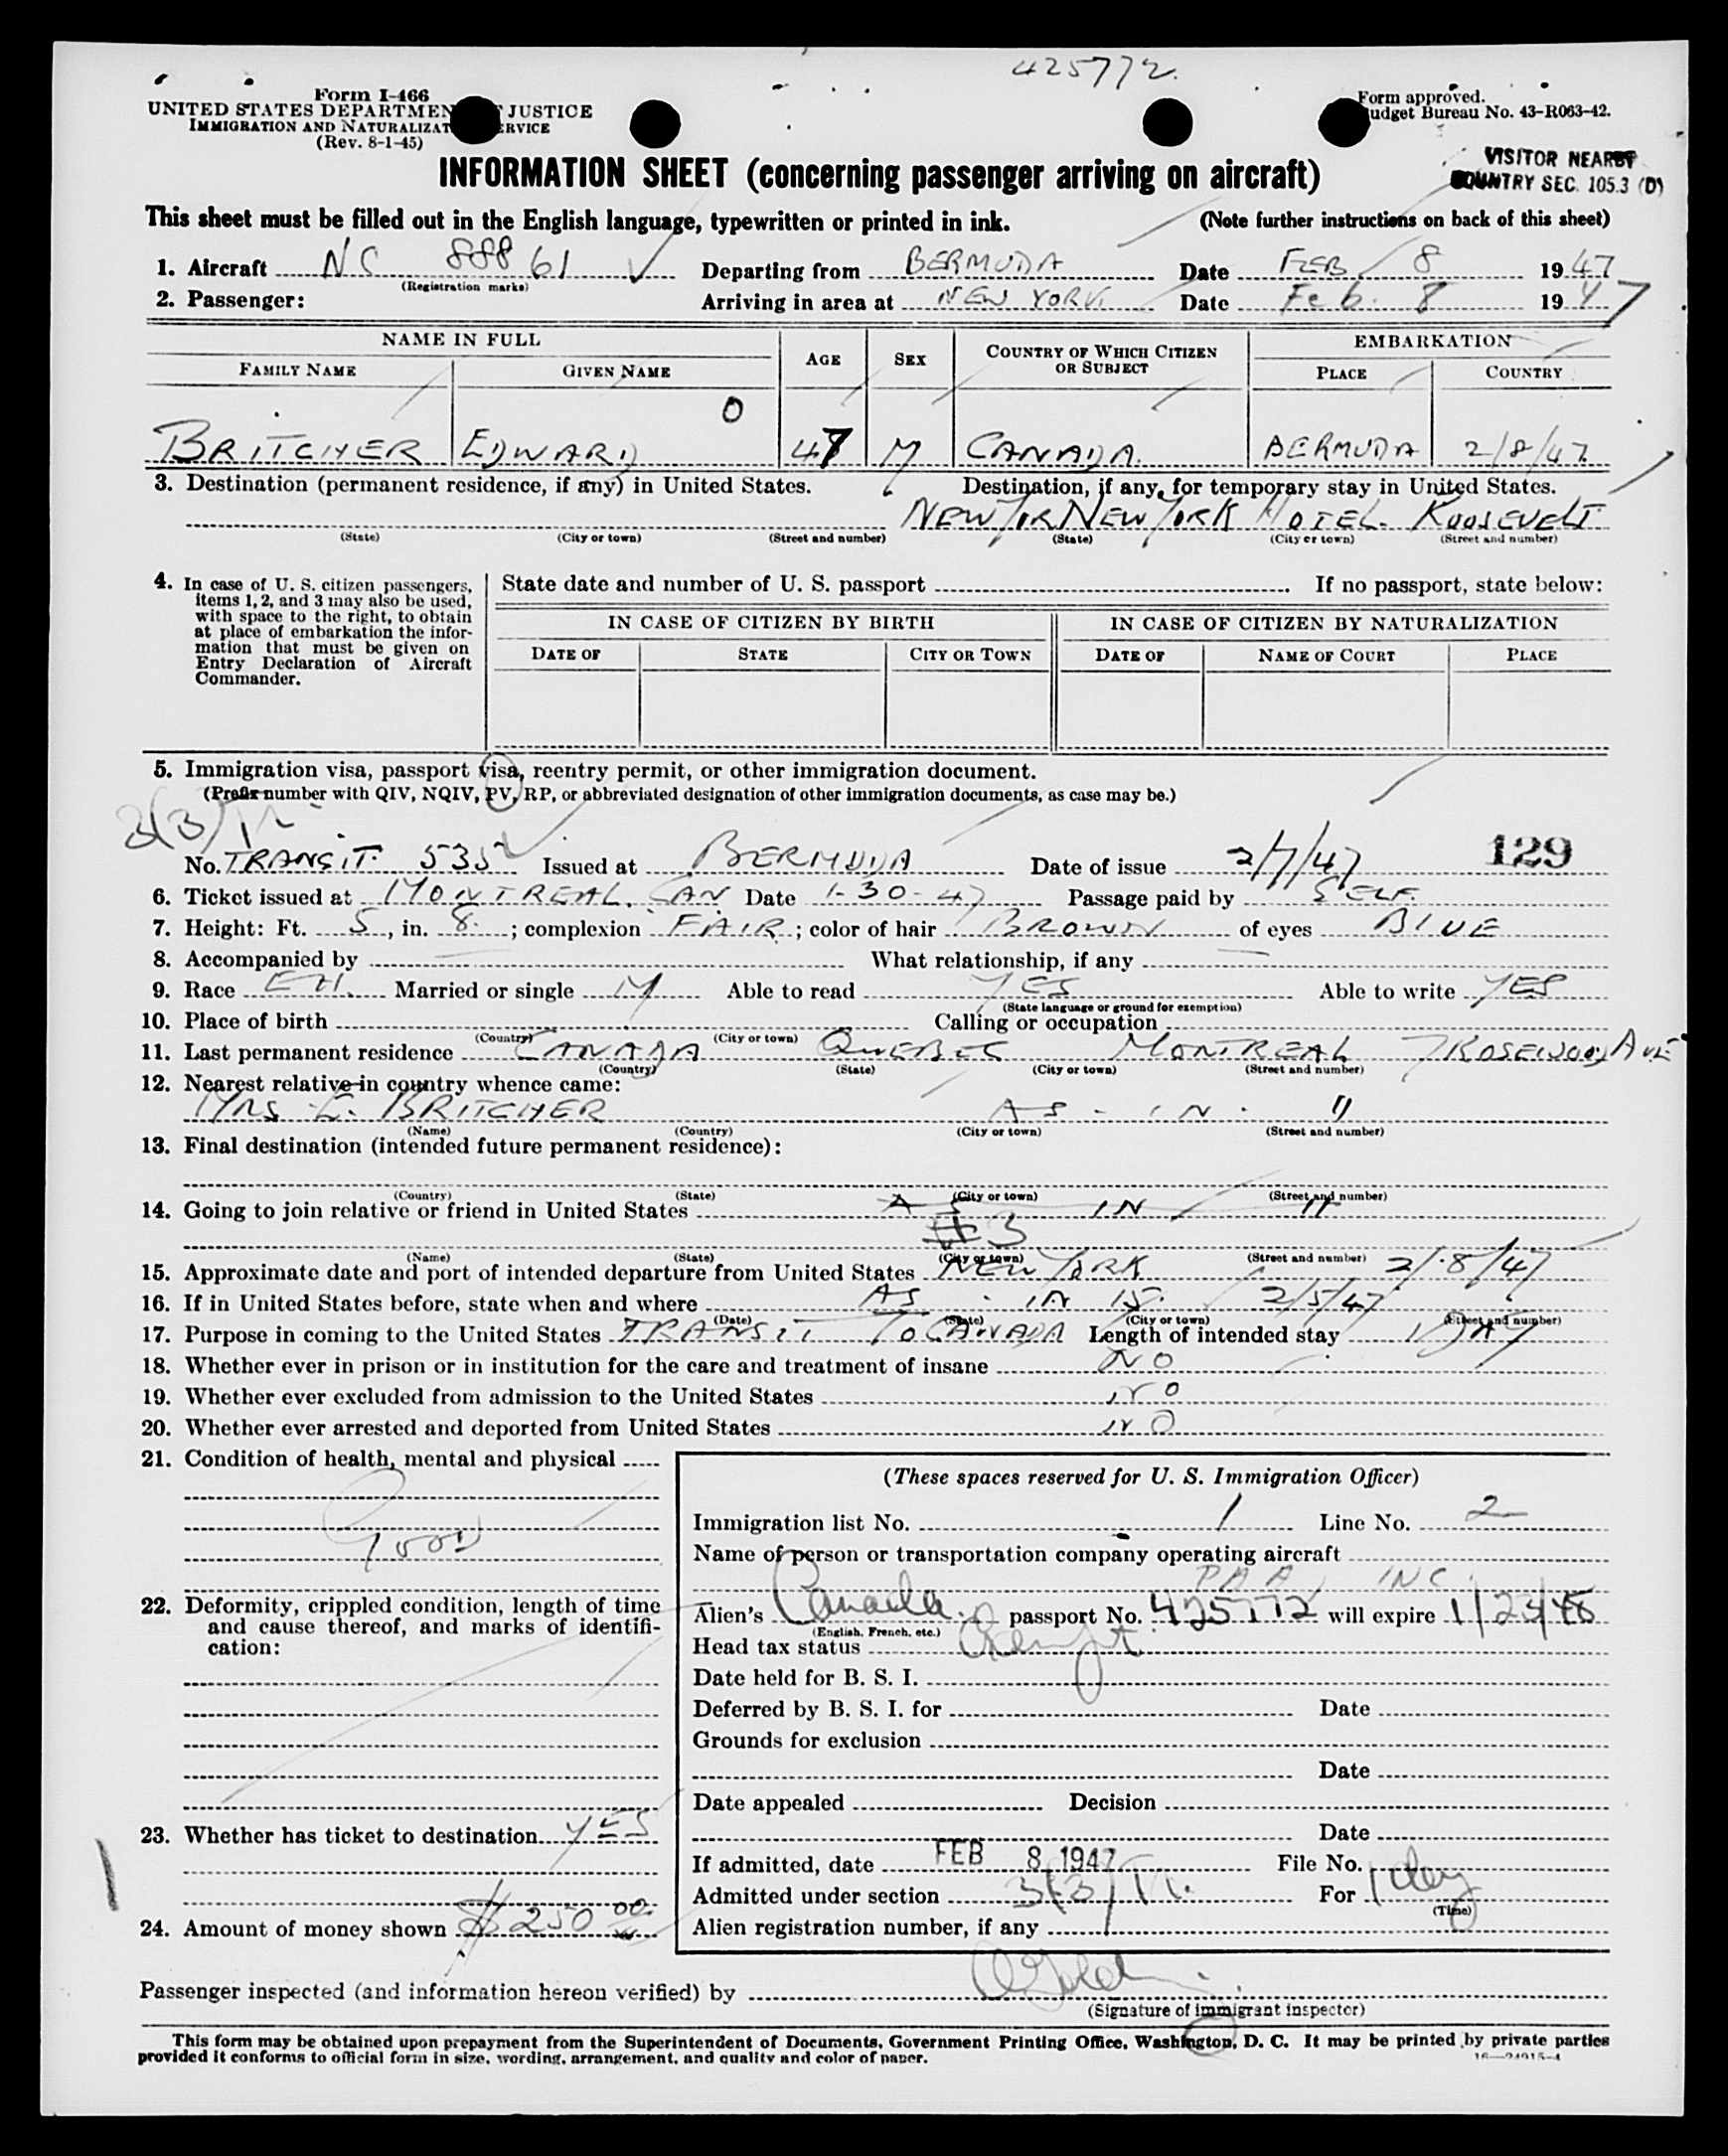 425772.
Form I-466
UNITED STATES DEPARTMEN JUSTICE
IMMIGRATION AND NATURALIZAT ERVICE
(Rev. 8-1-45)
Form approved.
udget Bureau No. 43-R063-42.
VISITOR NEARBY
COUNTRY SEC. 105.3 (D)
INFORMATION SHEET (concerning passenger arriving on aircraft)
This sheet must be filled out in the English language, typewritten or printed in ink. (Note further instructions on back of this sheet)
1. Aircraft NC 88861 Departing from BERMUDA Date FEB 8 1947
(Registration marks)
2. Passenger: Arriving in area at NEW YORK Date Feb. 8 1947
NAME IN FULL AGE SEX COUNTRY OF WHICH CITIZEN OR SUBJECT EMBARKATION
FAMILY NAME GIVEN NAME PLACE COUNTRY
0
BRITCHER EDWARD 47 M CANADA. BERMUDA 2/8/47
3. Destination (permanent residence, if any) in United States. Destination, if any, for temporary stay in United States.
NEW YOR NEW YORK HOTEL ROOSEVELT
(State) (City or town) (Street and number) (State) (City or town) (Street and number)
4. In case of U. S. citizen passengers, items 1, 2, and 3 may also be used, with space to the right, to obtain at place of embarkation the information that must be given on Entry Declaration of Aircraft Commander.
State date and number of U. S. passport If no passport, state below:
IN CASE OF CITIZEN BY BIRTH IN CASE OF CITIZEN BY NATURALIZATION
DATE OF STATE CITY OR TOWN DATE OF NAME OF COURT PLACE
5. Immigration visa, passport visa, reentry permit, or other immigration document.
(Prefix number with QIV, NQIV, PV, RP, or abbreviated designation of other immigration documents, as case may be.)
129
No. TRANSIT 535 Issued at BERMUDA Date of issue 2/7/47
6. Ticket issued at MONTREAL. CAN Date 1-30-47 Passage paid by SELF.
7. Height: Ft. 5, in. 8. ; complexion FAIR ; color of hair BROWN of eyes BLUE
8. Accompanied by What relationship, if any
9. Race EH. Married or single M Able to read YES Able to write YES
(State language or ground for exemption)
10. Place of birth Calling or occupation
(Country) (City or town)
11. Last permanent residence CANADA QUEBEC MONTREAL 7 ROSEWOOD AVE
(Country) (State) (City or town) (Street and number)
12. Nearest relative in country whence came:
MRS E. BRITCHER AS - IN - 11
(Name) (Country) (City or town) (Street and number)
13. Final destination (intended future permanent residence):
(Country) (State) (City or town) (Street and number)
14. Going to join relative or friend in United States AS IN 11
#3
(Name) (State) (City or town) (Street and number)
15. Approximate date and port of intended departure from United States NEW YORK 2/8/47
16. If in United States before, state when and where AS - IN 15. 2/5/47
(Date) (State) (City or town) (Street and number)
17. Purpose in coming to the United States TRANSIT TO CANADA Length of intended stay 1 DAY
18. Whether ever in prison or in institution for the care and treatment of insane NO
19. Whether ever excluded from admission to the United States NO
20. Whether ever arrested and deported from United States NO
21. Condition of health, mental and physical
GOOD
22. Deformity, crippled condition, length of time and cause thereof, and marks of identification:
23. Whether has ticket to destination YES
24. Amount of money shown $250 00
(These spaces reserved for U. S. Immigration Officer)
Immigration list No. 1 Line No. 2
Name of person or transportation company operating aircraft
PAA, INC.
Alien's Canada passport No. 425772 will expire 1/23/48
(English, French, etc.)
Head tax status Exempt
Date held for B. S. I.
Deferred by B. S. I. for Date
Grounds for exclusion
Date
Date appealed Decision
Date
If admitted, date FEB 8 1947 File No.
Admitted under section 3(3) For 1 day
(Time)
Alien registration number, if any
Passenger inspected (and information hereon verified) by
(Signature of immigrant inspector)
This form may be obtained upon prepayment from the Superintendent of Documents, Government Printing Office, Washington, D. C. It may be printed by private parties
provided it conforms to official form in size, wording, arrangement, and quality and color of paper.